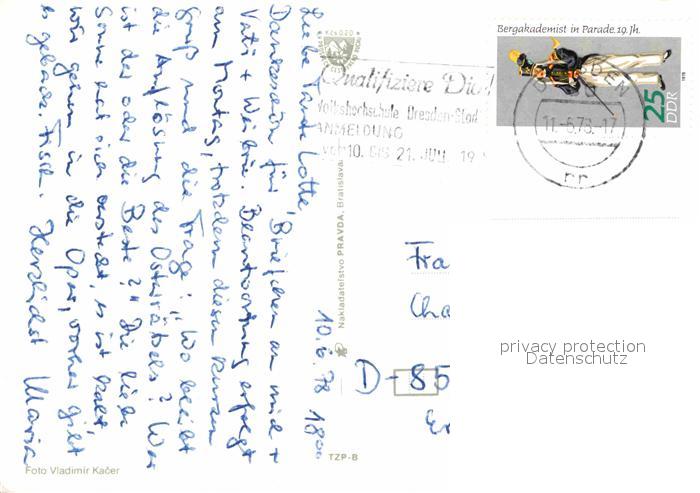 Liebe Tante Lotte,
Dankeschön für Briefchen an mich +
Vati + Weiber. Beantwortung erfolgt
am Montag, trotzdem diesen kurzen
Gruß und die Frage: "Wo bleibt
die Auflösung des Osterrätsels? Wer
ist der oder die Beste?" Die liebe
Sonne hat sich versteckt, es ist kalt,
wir gehen in die Oper, vorher gibt
es geback. Fisch. Herzlichst Maria
10.6.78 18⁰⁰
Foto Vladimír Kačer
Nakladateľstvo PRAVDA, Bratislava
TZP-B
Qualifiziere Dich
Volkshochschule Dresden-Stadt
ANMELDUNG
vom 10. BIS 21. JULI 19
Bergakademist in Parade. 19. Jh.
25
DDR
1978
DRESDEN
11.-6.78.-17
Fra
Cha
D-85
privacy protection
Datenschutz